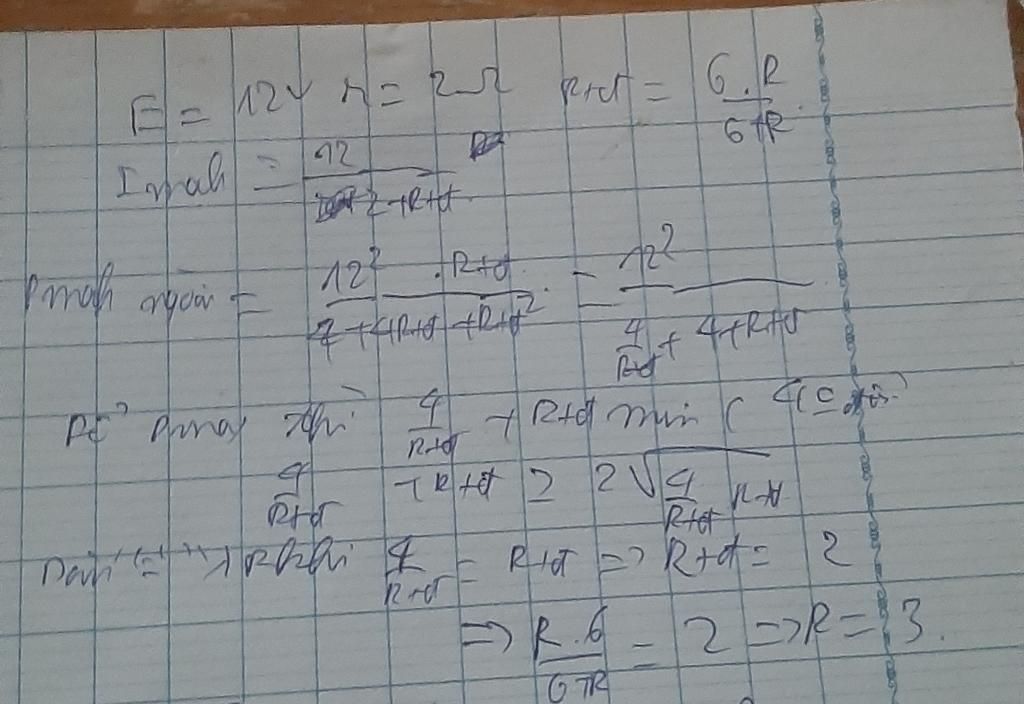 E = 12V r = 2Ω Rtđ = 6.R / 6+R
I mạch = 12 / 2+Rtđ
Pmạch ngoài = 12² . Rtđ / 4+4Rtđ+Rtđ² = 12² / 4/Rtđ + 4+Rtđ
Để Pmax thì 4/Rtđ + Rtđ min (
4/Rtđ + Rtđ ≥ 2√(4/Rtđ Rtđ)
Dấu "=" khi 4/Rtđ = Rtđ => Rtđ = 2
=> R.6 / 6+R = 2 => R = 3.